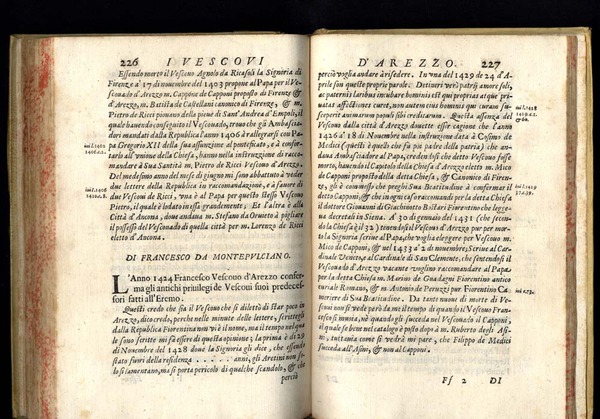 226
I VESCOVI
Essendo morto il Vescouo Agnolo da Ricasoli la Signoria di
Firenze a' 17 di nouembre del 1403 propone al Papa per il Ve-
scouado d'Arezzo m. Cappone de Capponi proposto di Firenze &
d'Arezzo, m. Batista de Castellani canonico di Firenze, & m.
Pietro de Ricci piouano della pieue di Sant'Andrea d'Empoli, il
quale hauendo conseguito il Vescouado, truouo che gli Ambascia-
dori mandati dalla Republica l'anno 1406 à rallegrarsi con Pa-
pa Gregorio XII della sua assuntione al pontificato, e à confor-
tarlo all'vnione della Chiesa, hanno nella instruzzione di racco-
mandare à Sua Santità m. Pietro de Ricci Vescouo d'Arezzo.
Del medesimo anno nel mese di giugno mi sono abbattuto à veder
due lettere della Republica in raccomandazione, e à fauore di
due Vescoui de Ricci, vna è al Papa per questo stesso Vescouo
Pietro, il quale è lodato in esse grandemente; Et l'altra è alla
Città d'Ancona, doue andana m. Stefano da Orueto à pigliare
il possesso del Vescouado di quella città per m. Lorenzo de Ricci
eletto d'Ancona.
DI FRANCESCO DA MONTEPVLCIANO.
L'Anno 1424 Francesco Vescouo d'Arezzo confer-
ma gli antichi priuilegi de Vescoui suoi predeces-
sori fatti all'Eremo.
Questi credo che sia il Vescouo che si dilettò di star poco in
Arezzo, dico credo, perche nelle minute delle lettere, scritte gli
dalla Republica Fiorentina non vi è il nome, ma il tempo nel qua
le sono scritte mi fa essere di questa opinione; la prima è di 29
di Nouembre del 1428 doue la Signoria gli dice, che essendo
stato fuori della residenza . . . . . . anni, gli Aretini non so-
lo si lamentano, ma si porta pericolo di qualche scandolo, & che
perciò
D'AREZZO.
227
perciò voglia andare à risedere. In vna del 1429 de 24 d'A-
prile son queste proprie parole. Detineri verò patrij amore soli,
ac paternis laribus incubare hominis est qui proprias atque pri-
uatas affectiones curet, non autem eius hominis qui curam su-
scepserit animarum populi sibi crediturum. Questa assenza del
Vescouo dalla città d'Arezzo douette esser cagione che l'anno
1426 à 18 di Nouembre nella instruzzione data à Cosimo de
Medici (questi è quello che fu poi padre della patria) che an-
daua Ambasciadore al Papa, credendosi che detto Vescouo fusse
morto, hauendo il Capitolo della Chiesa d'Arezzo eletto m. Mico
de Capponi proposto della detta Chiesa, & Canonico di Firen-
ze, gli è commesso che preghi Sua Beatitudine à confermar il
detto Capponi; & che in ogni caso raccomandi per la detta Chiesa
il dottore Giouanni di Giachinotto Boscoli Fiorentino che legge-
ua decretali in Siena. A' 30 di gennaio del 1431 (che secon-
do la Chiesa è il 32) tenendosi il Vescouo d'Arezzo pur per mor-
to la Signoria scriue al Papa, che voglia eleggere per Vescouo m.
Mico de Capponi, & nel 1433 à 2 di nouembre, Scriue al Car-
dinale Veneto, e al Cardinale di San Clemente, che sentendosi il
Vescouado d'Arezzo vacante voglino raccomandare al Papa
per la detta Chiesa m. Marino de Guadagni Fiorentino antico
curiale Romano, & m. Antonio de Peruzzi pur Fiorentino Ca-
meriere di Sua Beatitudine. Da tante nuoue di morte di Ve-
scoui non si vede però da me il tempo di quando il Vescouo Fran-
cesco si muoia, nè quando gli succeda nel Vescouado il Capponi,
il quale se bene nel catalogo è posto dopo à m. Ruberto degli Asi-
ni, tuttauia come si vedrà mi pare, che Filippo de Medici
succeda all'Asini, & non al Capponi.
Ff 2
DI